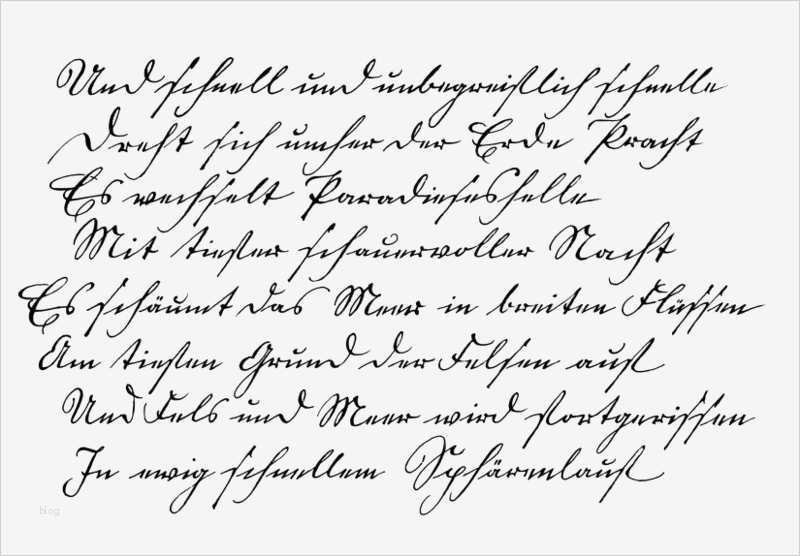 Und schnell und unbegreiflich schnelle
Dreht sich umher der Erde Pracht
Es wechselt Paradieseshelle
Mit tiefer schauervoller Nacht
Es schäumt das Meer in breiten Flüssen
Am tiefen Grund der Felsen auf
Und Fels und Meer wird fortgerissen
In ewig schnellem Sphärenlauf
blog